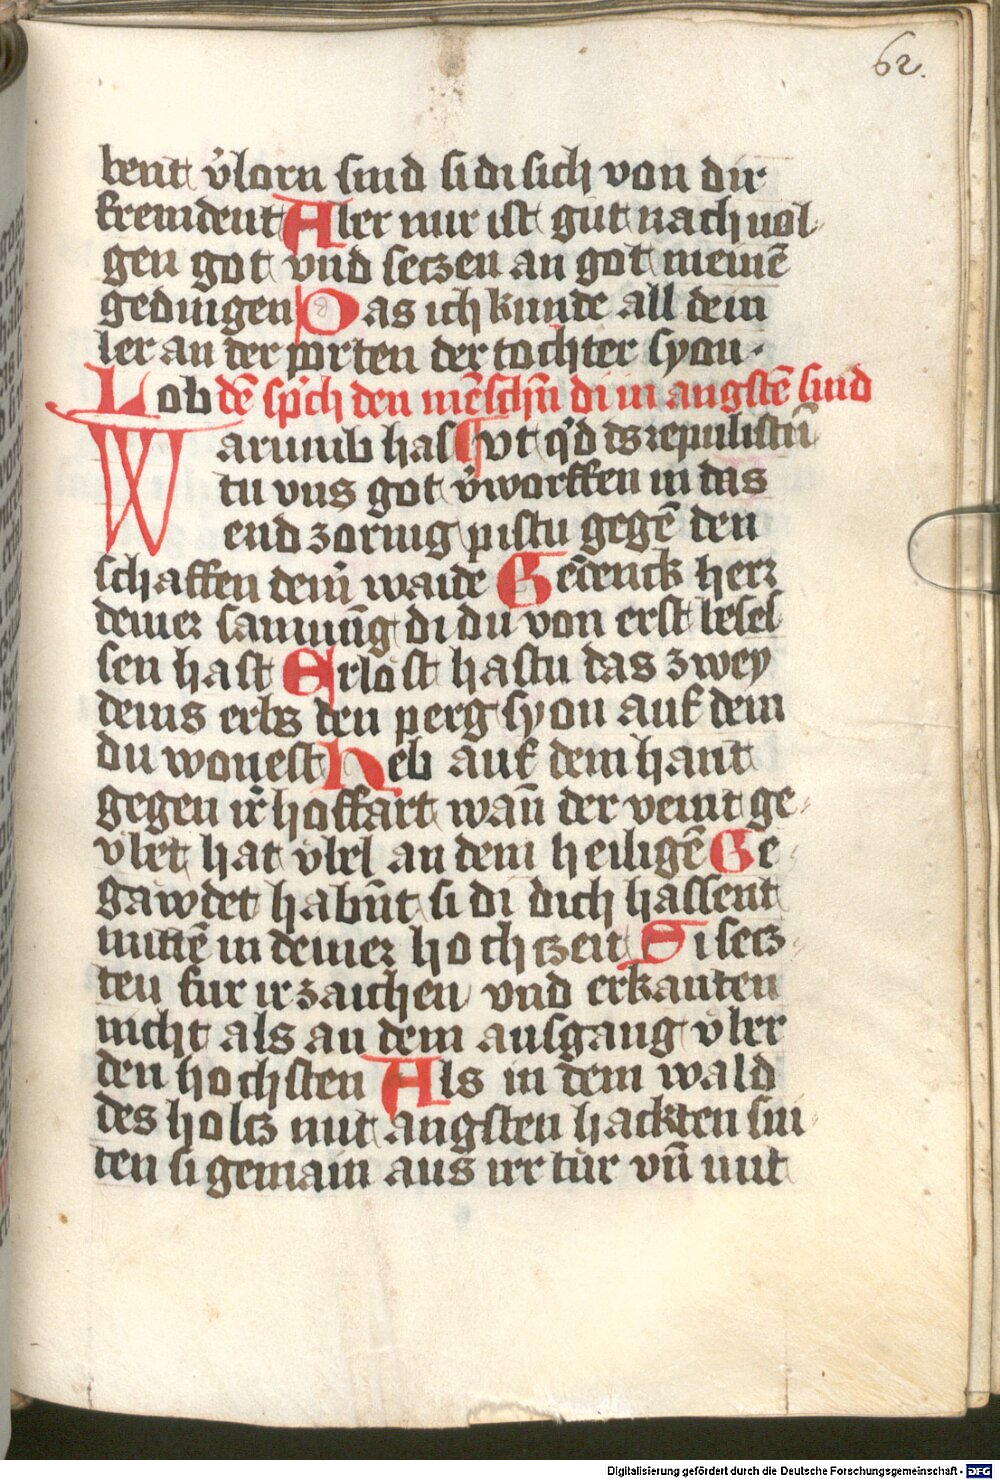 62.
bent v̓lorn sind si di sich von dir
fremdent Aber mir ist gut nach uol
gen got vnd seczen an got meinē
gedingen Das ich kunde all dein
ler an der porten der tochter syon.
Lob dē sp̄ch den mēschn̄ di in angstē sind
Warumb has Vt q̓d ds repulistī
tu vns got v̓worffen in das
end zornig pistu gegē den
schaffen dein̄ waide Gedenck herr
deiner samnūg di du von erst beses
sen hast Erlost hastu das zwey
deins erbs den perg syon auf dem
du wonest Heb auf dein hant
gegen ir̓ hoffart wan̄ der veint ge
vbet hat vbel an dem heiligē Ge
gawdet habn̄t si di dich hassent
mittē in deiner hochczeit Si secz
ten fur ir zaichen vnd erkanten
nicht als an dem ausgang vber
den hochsten Als in dem wald
des holcz mit angsten hackten sni
ten si gemain aus irr tür vn̄ mit
Digitalisierung gefördert durch die Deutsche Forschungsgemeinschaft - DFG